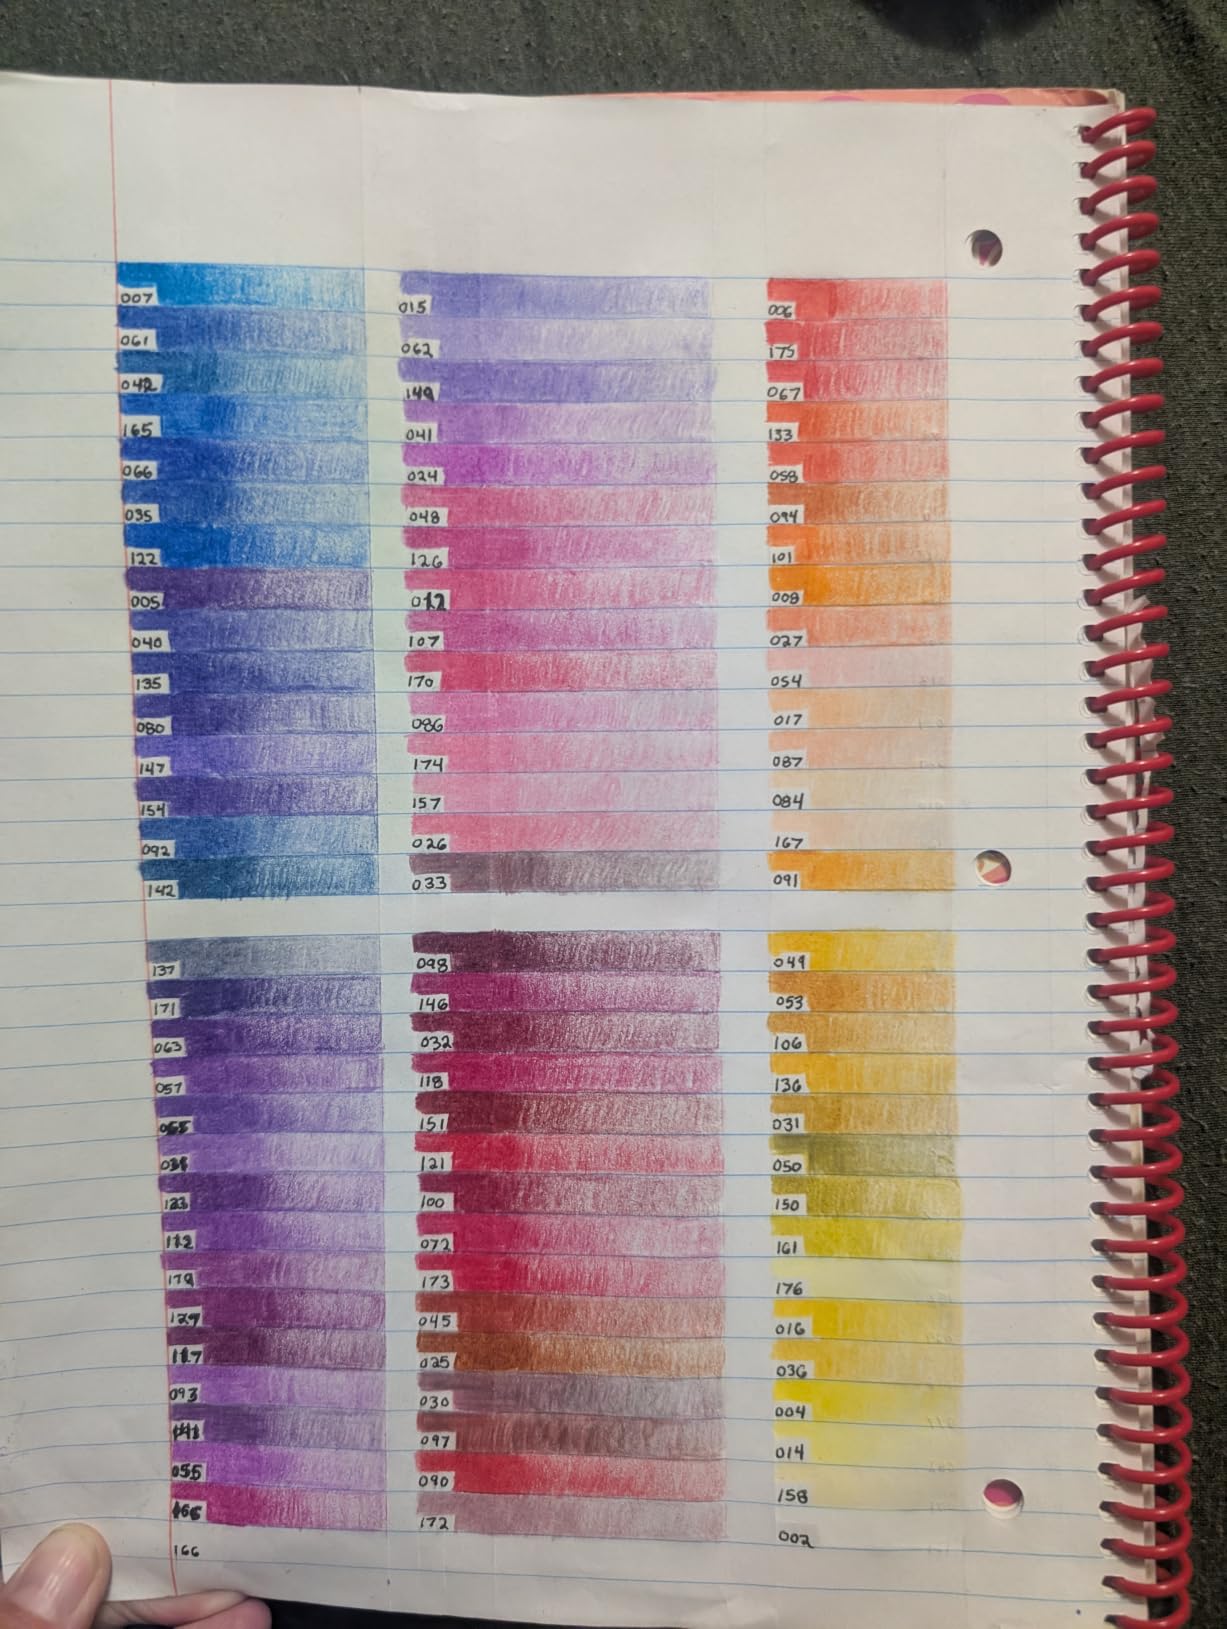 007
061
042
165
066
035
122
005
040
135
080
147
154
092
142
137
171
063
057
123
112
179
129
117
093
055
166
166
015
062
149
041
024
048
126
012
107
170
086
174
157
026
033
098
146
032
118
151
121
100
072
173
045
025
030
097
090
172
006
175
067
133
058
094
101
008
027
054
017
087
084
167
091
049
053
106
136
031
050
150
161
176
016
036
004
014
158
002